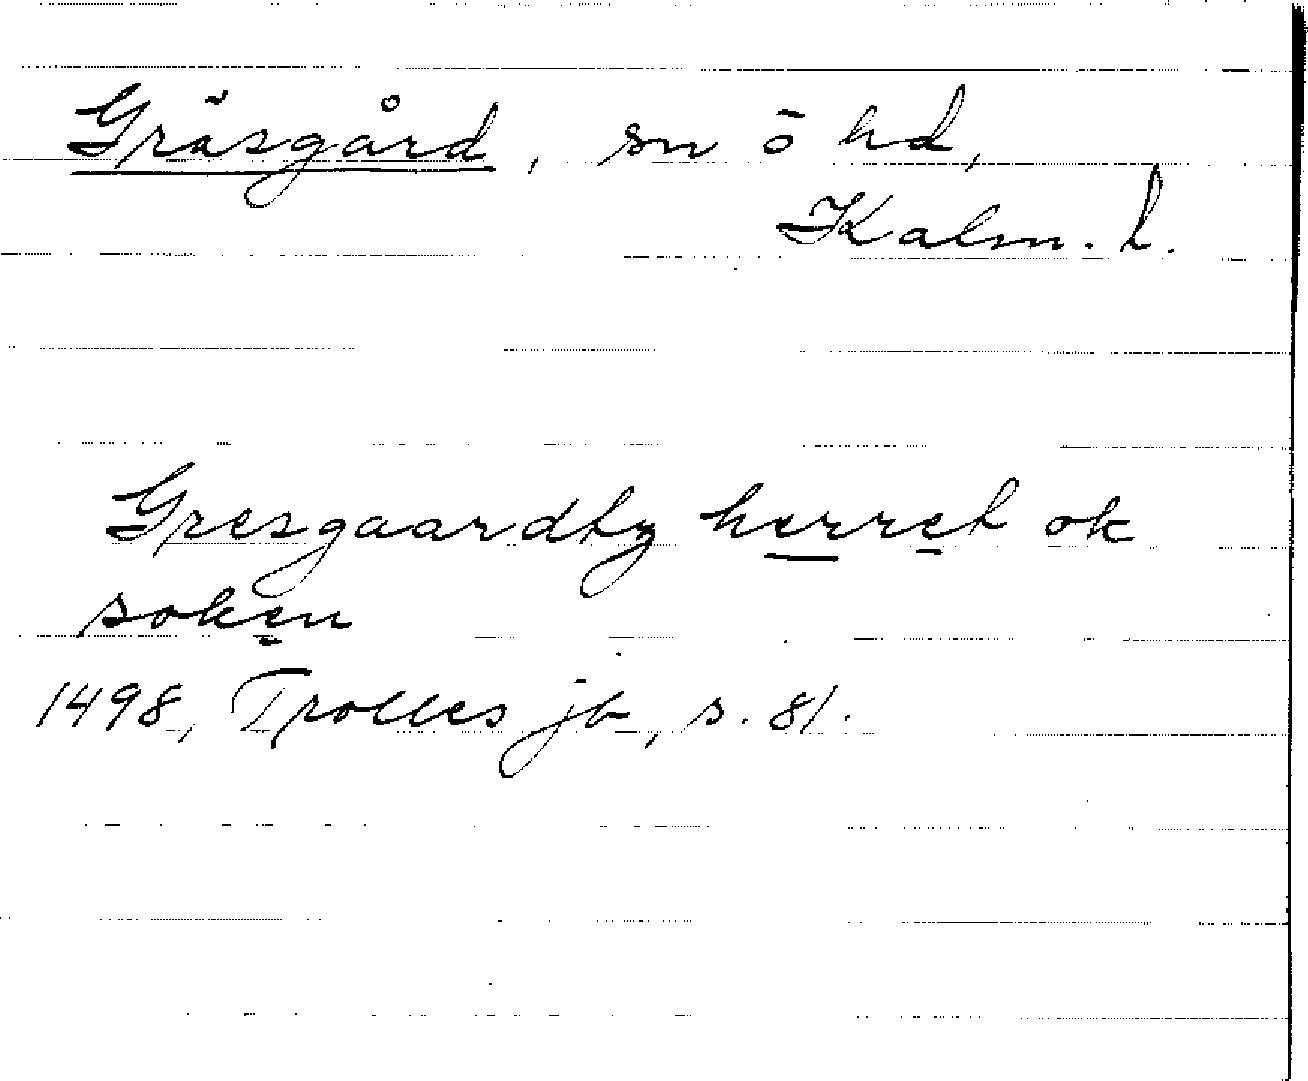 Gräsgård, sn ö hd,
Kalm. l.
Gresgaardby herret ok
soken
1498, Trolles jb, s. 81.